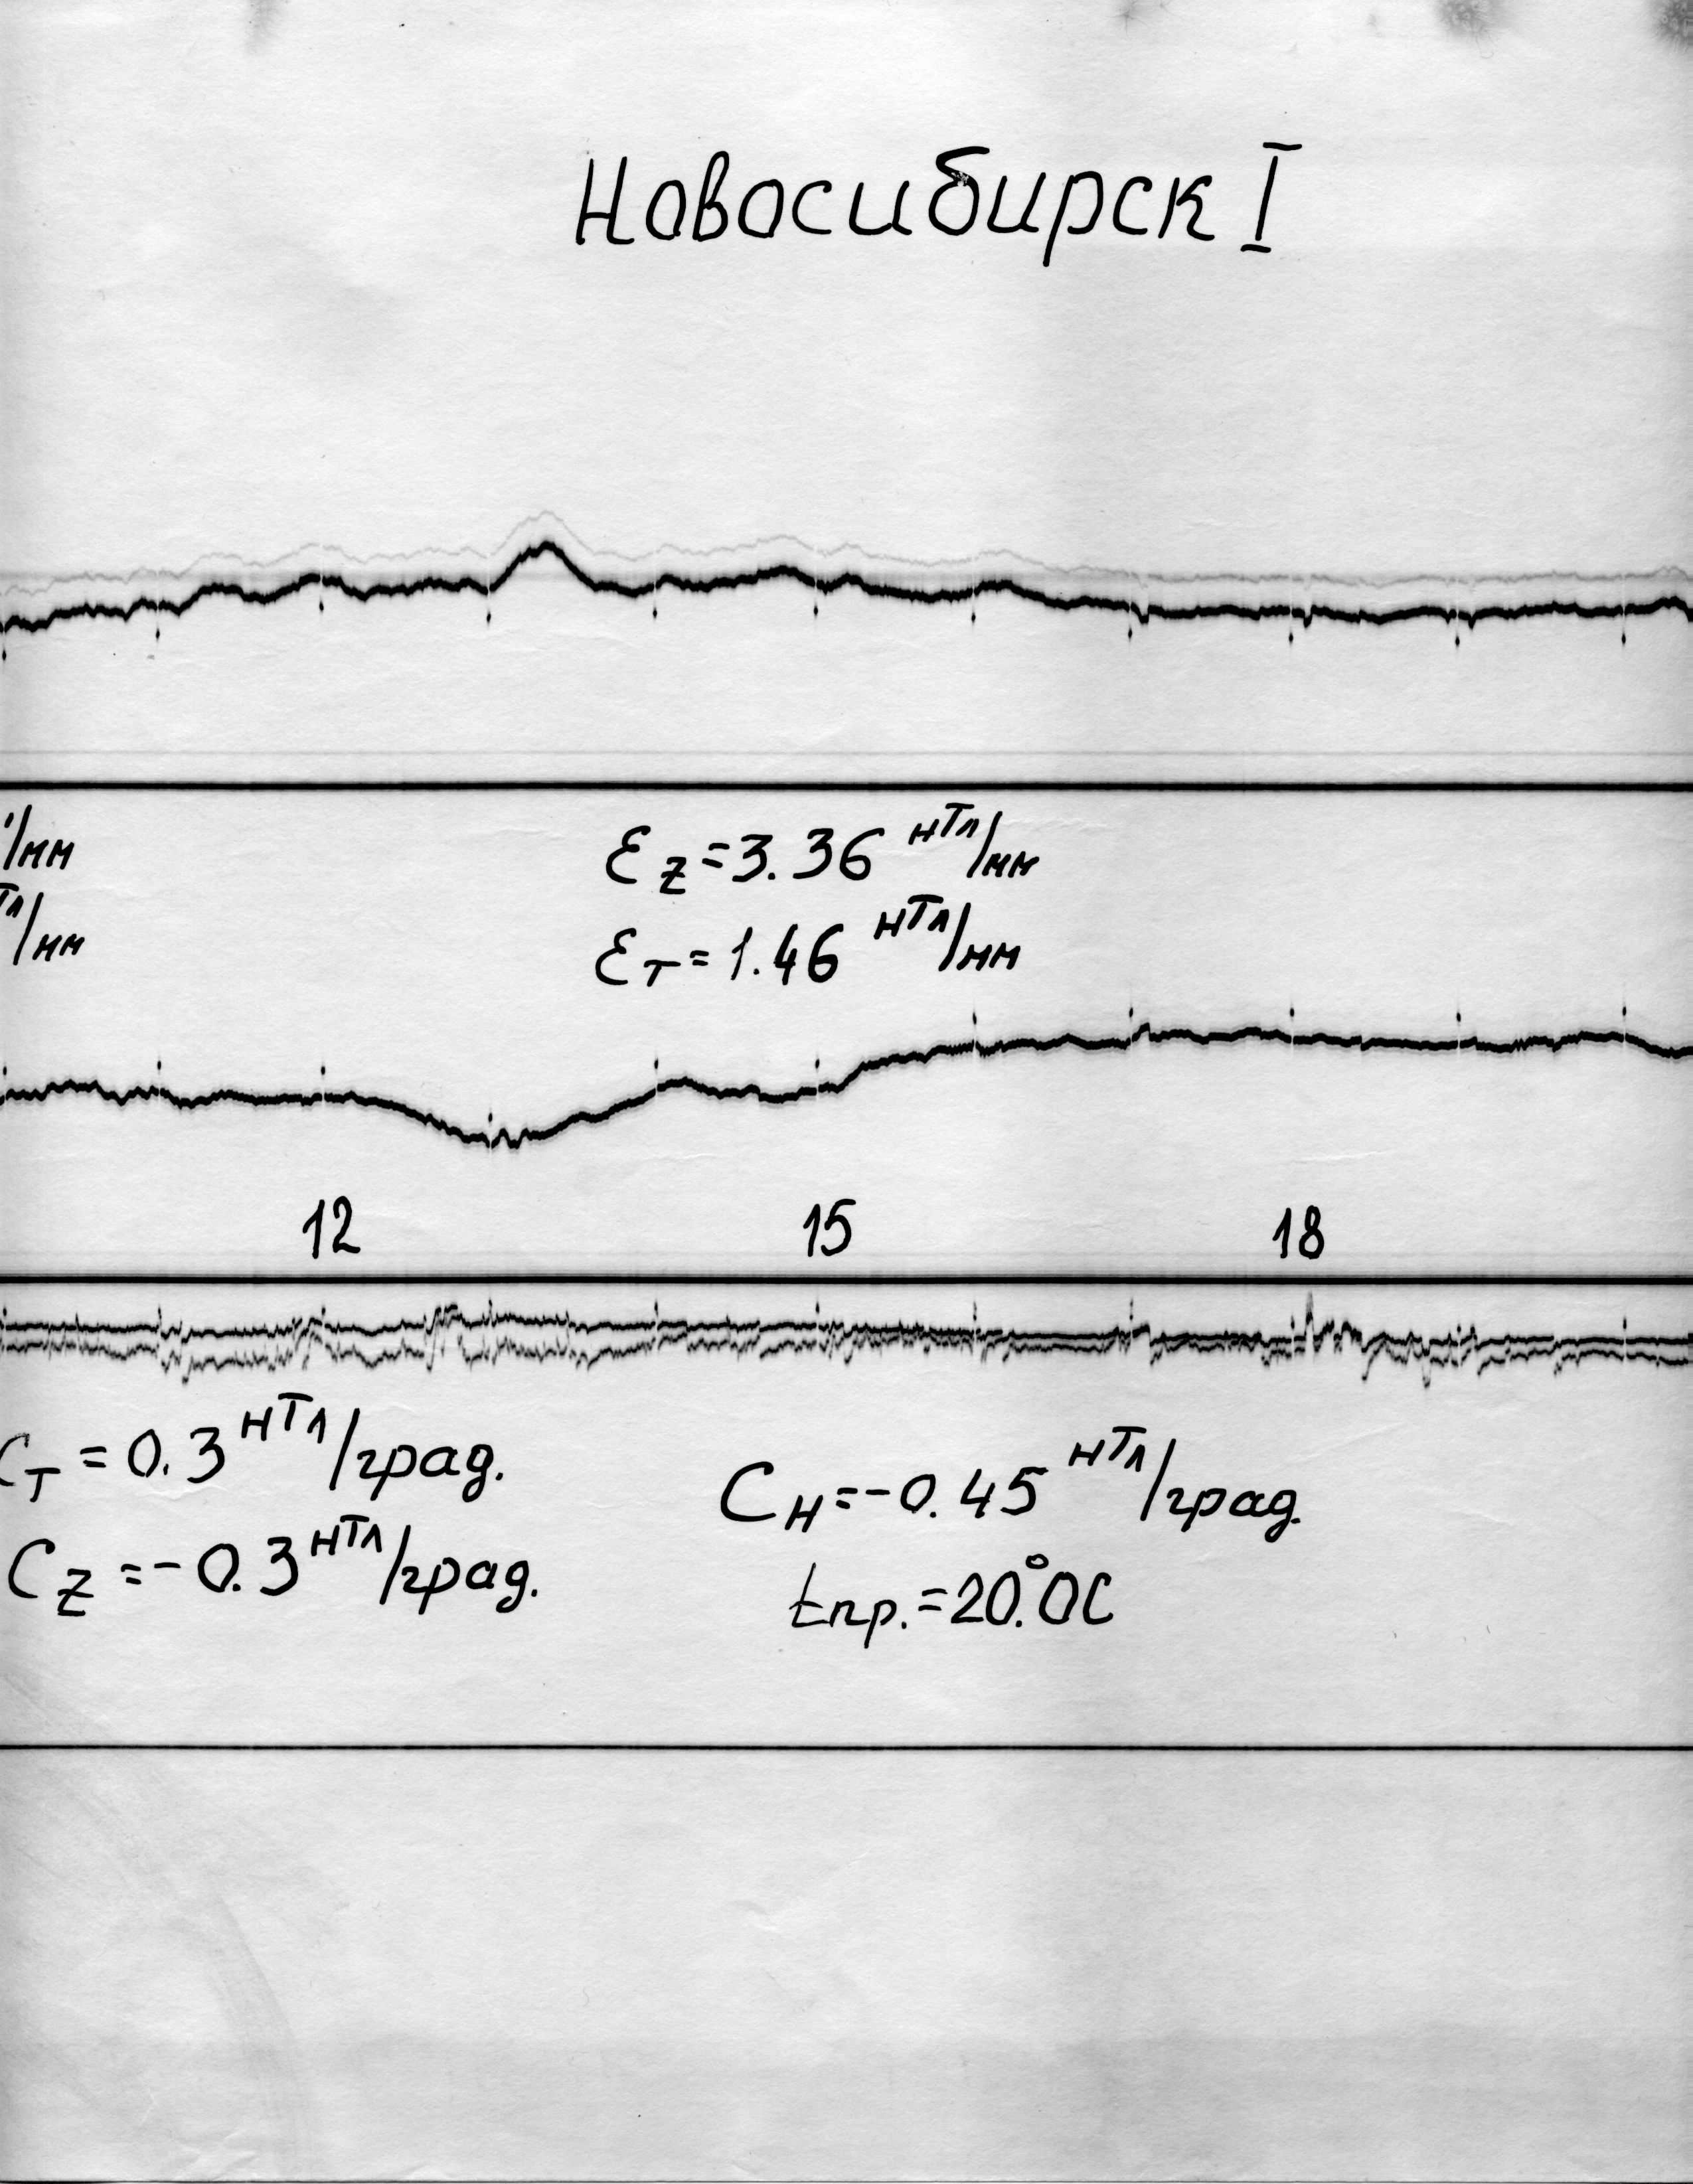 Новосибирск I
'/мм
Тл/мм
Ɛz=3.36 нТл/мм
Ɛт=1.46 нТл/мм
12
15
18
Cт=0.3 нТл/град.
Cz=-0.3 нТл/град.
Cн=-0.45 нТл/град.
tпр.=20.°0C